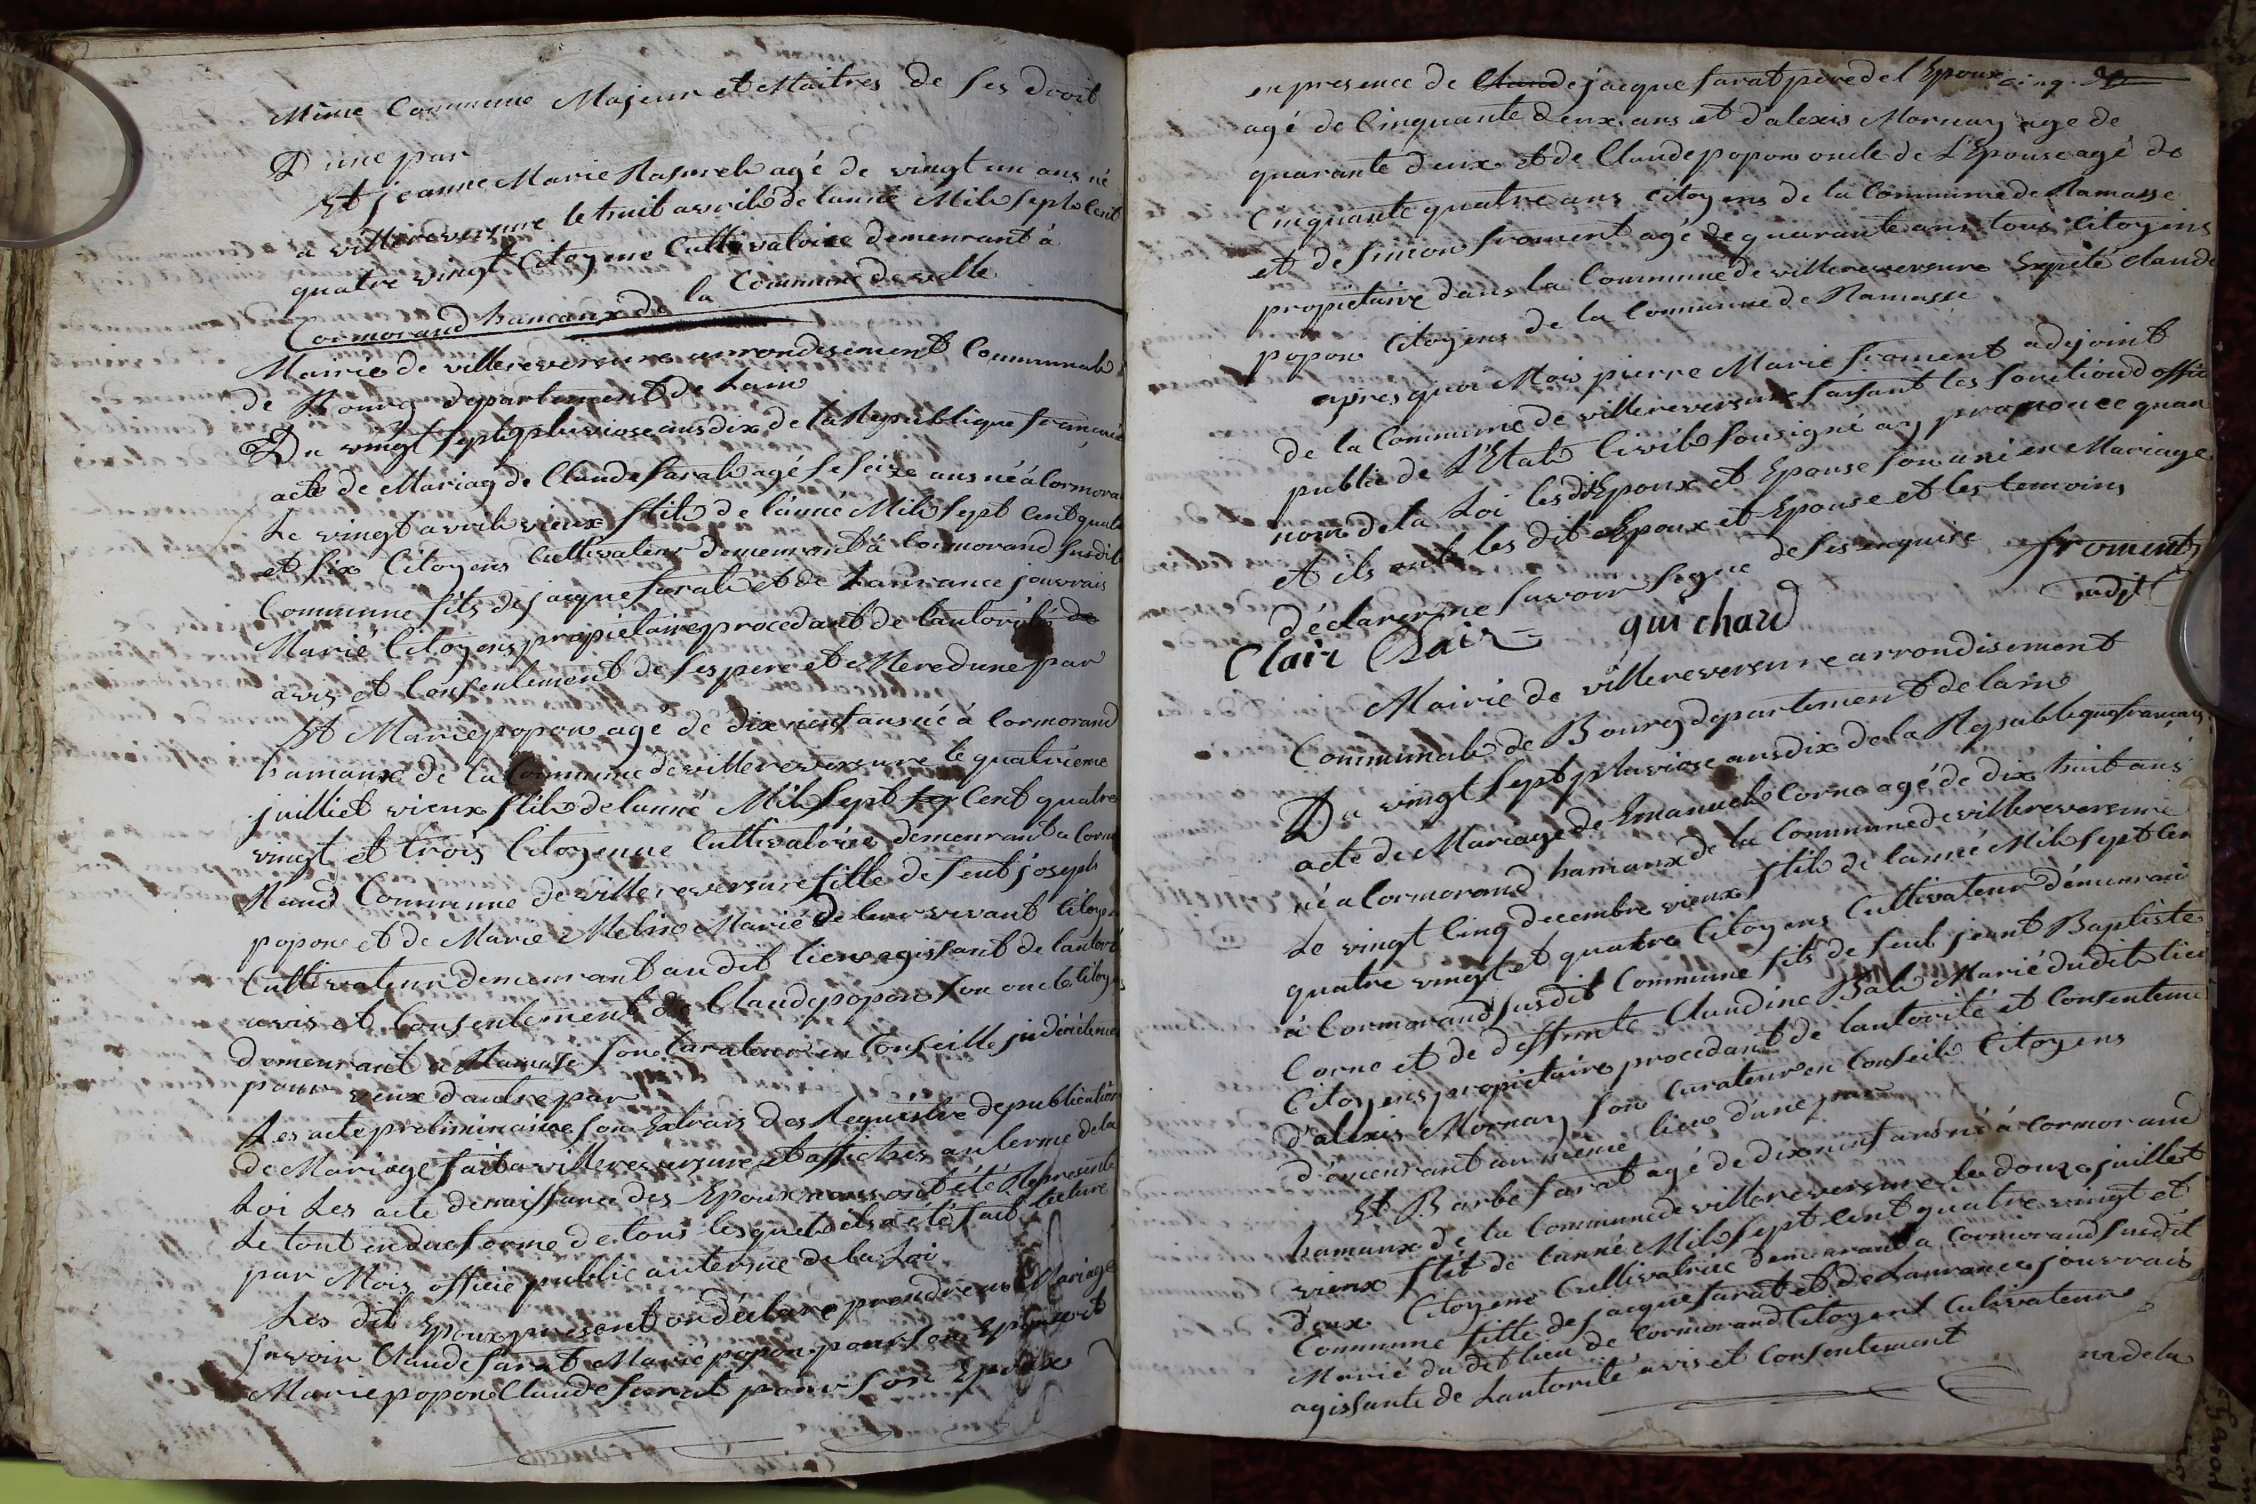 Même Commune Majeur et Maitres de ses droit
D'une par
Et jeanne Marie agé de vingt un ans né
a villereversure le huit avril de lanné Mil sept Cent
quatre vingt Citoyene Cultivatrice demeurant à
Cormorand hamaux de la Commune de ville
Mairie de villereversure arrondisement Communal
de Bourg departement de Lain
Du vingt sept pluviose ans dix de la Republique français
acte de Mariag de Claude Sarat agé se seize ans né à Cormoran
Le vingt avril vieux stile de lanne Mil sept Cent quatre
et six Citoyens Cultivateur demeurant à Cormorand susdit
Commune fils de jacque Sarat et de Laurance jouvrais
Marié Citoyens propietaire procedant de lautorité de
avis et Consentement de ses pere et Mere dune par
Et Marie popon agé de dix neuf ans né à Cormorand
hamaux de la Commune de villereversure le quatrieme
juilliet vieux stile de lanné Mil sept Cent quatre
vingt et trois Citoyenne Cultivatrice demeurant a Cormo
Rand Commune de villereversure fille de feut joseph
popon et de Marie Marié de leur vivant Citoyen
Cultivateur demeurant audit lieu agissant de lautori
avis et Consentement de Claude popon son oncle Citoyen
demeurant a Ramasse son Curateur en Conseille
pour d'autre par
Les acte preliminaire son Extrais des Requistre de publication
de Mariage fait a villereversure et affichés au terme de la
Loi Les acte de naissance des Epoux nous ont été Represente
Le tout en due forme de tous lesquels il a été fait lecture
par Mois officié public au terme de la Loi
Les dit Epoux present on declare prendre en Mariage
savoir Claude Sarat Marie popon pour son Epouse et
Marie popon Claude Sarat pour son Epoux
en presence de Claude jacque Sarat pere de l'Epoux cinq.
agé de Cinquante deux ans et d'alexis Mornay age de
quarante deux et de Claude popon oncle de L'Epouse agé de
Cinquante quatre ans Citoyens de la Commune de Ramasse
et de simon froment agé de quarante ans tous Citoyens
propiétaire dans la Commune de villereversure Expété Claude
popon Citoyens de la Commune de Ramasse
apres quoi Mois pierre Marie froment adejoint
de la Commune de villereversure faisant les fonctiond offic
public de L'Etat Civil sousigné ay prononce quau
nom de la Loi les dit Epoux et Epouse son uni en Mariage
et ils ont les dit Epoux et Epouse et les temoins
déclarer ne savoir signe de ses enquise froment
Clair Clair quichard adjt
Mairie de villereversure arrondisement
Communale de Bourg departement de lain
Du vingt sept pluviose ans dix de la Republique français
acte de Mariage de Emanuel Corne agé de dix huit ans
né a Cormorand hamaux de la Commune de villereversure
Le vingt Cinq decembre vieux stile de lanné Mil sept Cen
quatre vingt et quatre Citoyens Cultivateur démeurant
à Cormorand susdit Commune fils de feut jeant Baptiste
Corne et de deffunte Claudine Marié dudit lieu
Citoyens propietaire procedant de lautorité et Consenteme
d'alexis Mornay son Curateur en Conseil Citoyens
démeurant au meme lieu d'une par
Et Barbe Sarat agé de dix neuf ans né à Cormorand
hamaux de la Commune de villereversure le douze juillet
vieux stile de lanné Mil sept cent quatre vingt et
deux Citoyene Cultivatrice demeurant a Cormorand susdit
Commune fille de jacque Sarat et de Laurance jouvrais
Marié du dit lieu de Cormorand Citoyens Cultivateur
agissante de Lautorité avis et Consentement